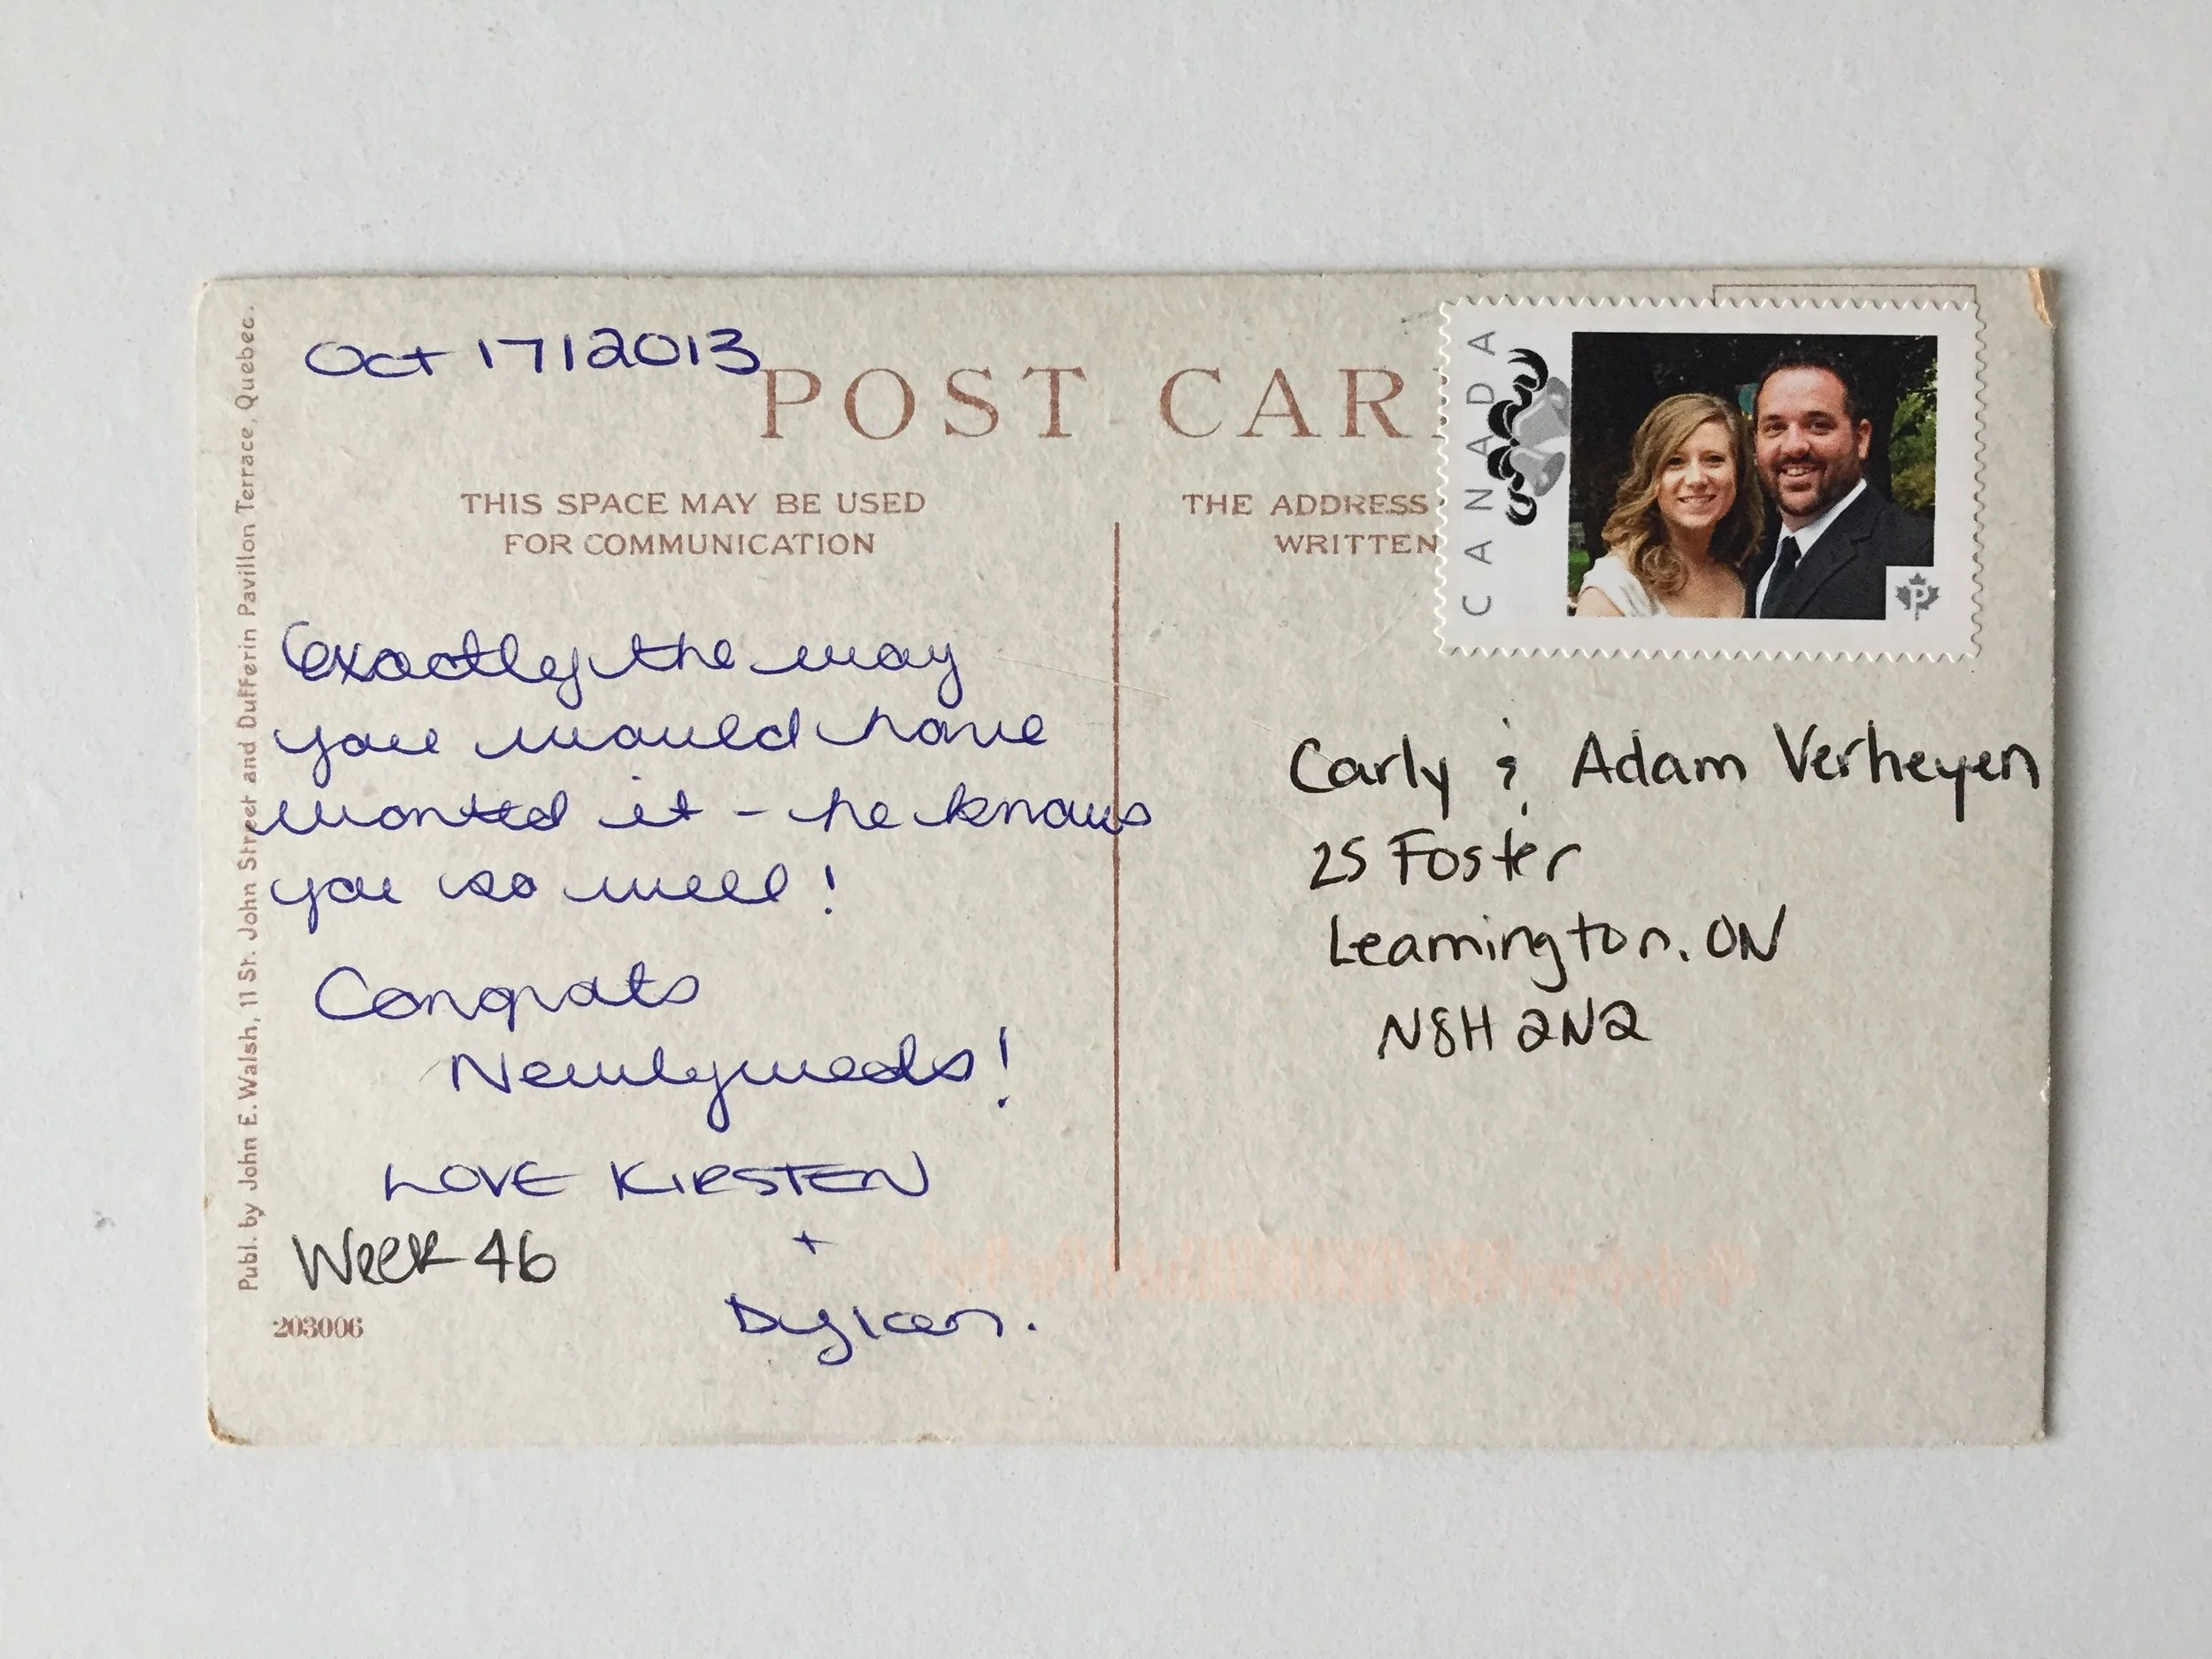 Oct 17/2013
POST CAR
THIS SPACE MAY BE USED
FOR COMMUNICATION
Exactly the way
you would have
wanted it - he knows
you so well!
Congrats
Newlyweds!
LOVE KIRSTEN
+
Week 46
203006
Publ. by John E. Walsh, 11 St. John Street and Dufferin Pavilion Terrace, Quebec.
THE ADDRESS
WRITTEN
CANADA
P
Carly & Adam Verheyen
25 Foster
Leamington. ON
N8H 2N2